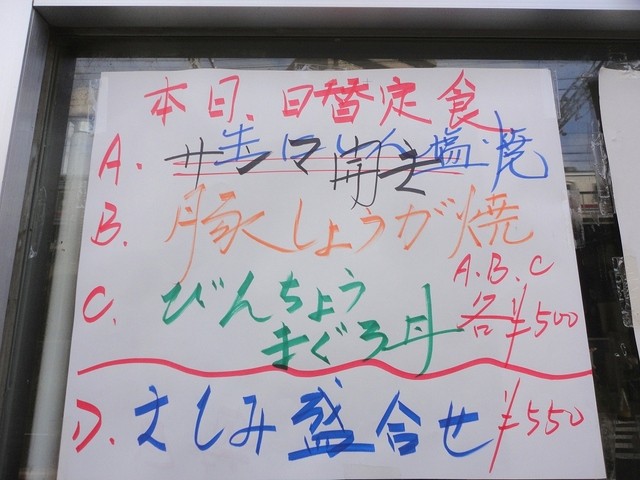 本日、日替定食
A. サンマ開き
生にしん塩焼
B. 豚しょうが焼
C. びんちょう
まぐろ丼
A.B.C
各¥500
D. さしみ盛合せ ¥550